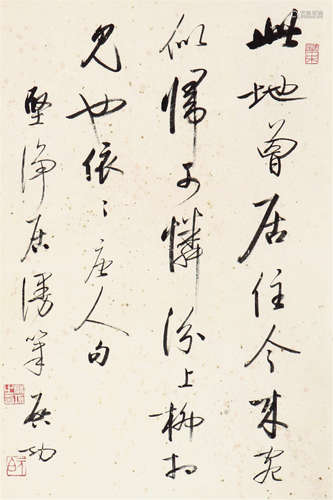 此地曾居住今来宛
似歸可憐汾上柳相
見也依〻唐人句
堅净居漫筆启功